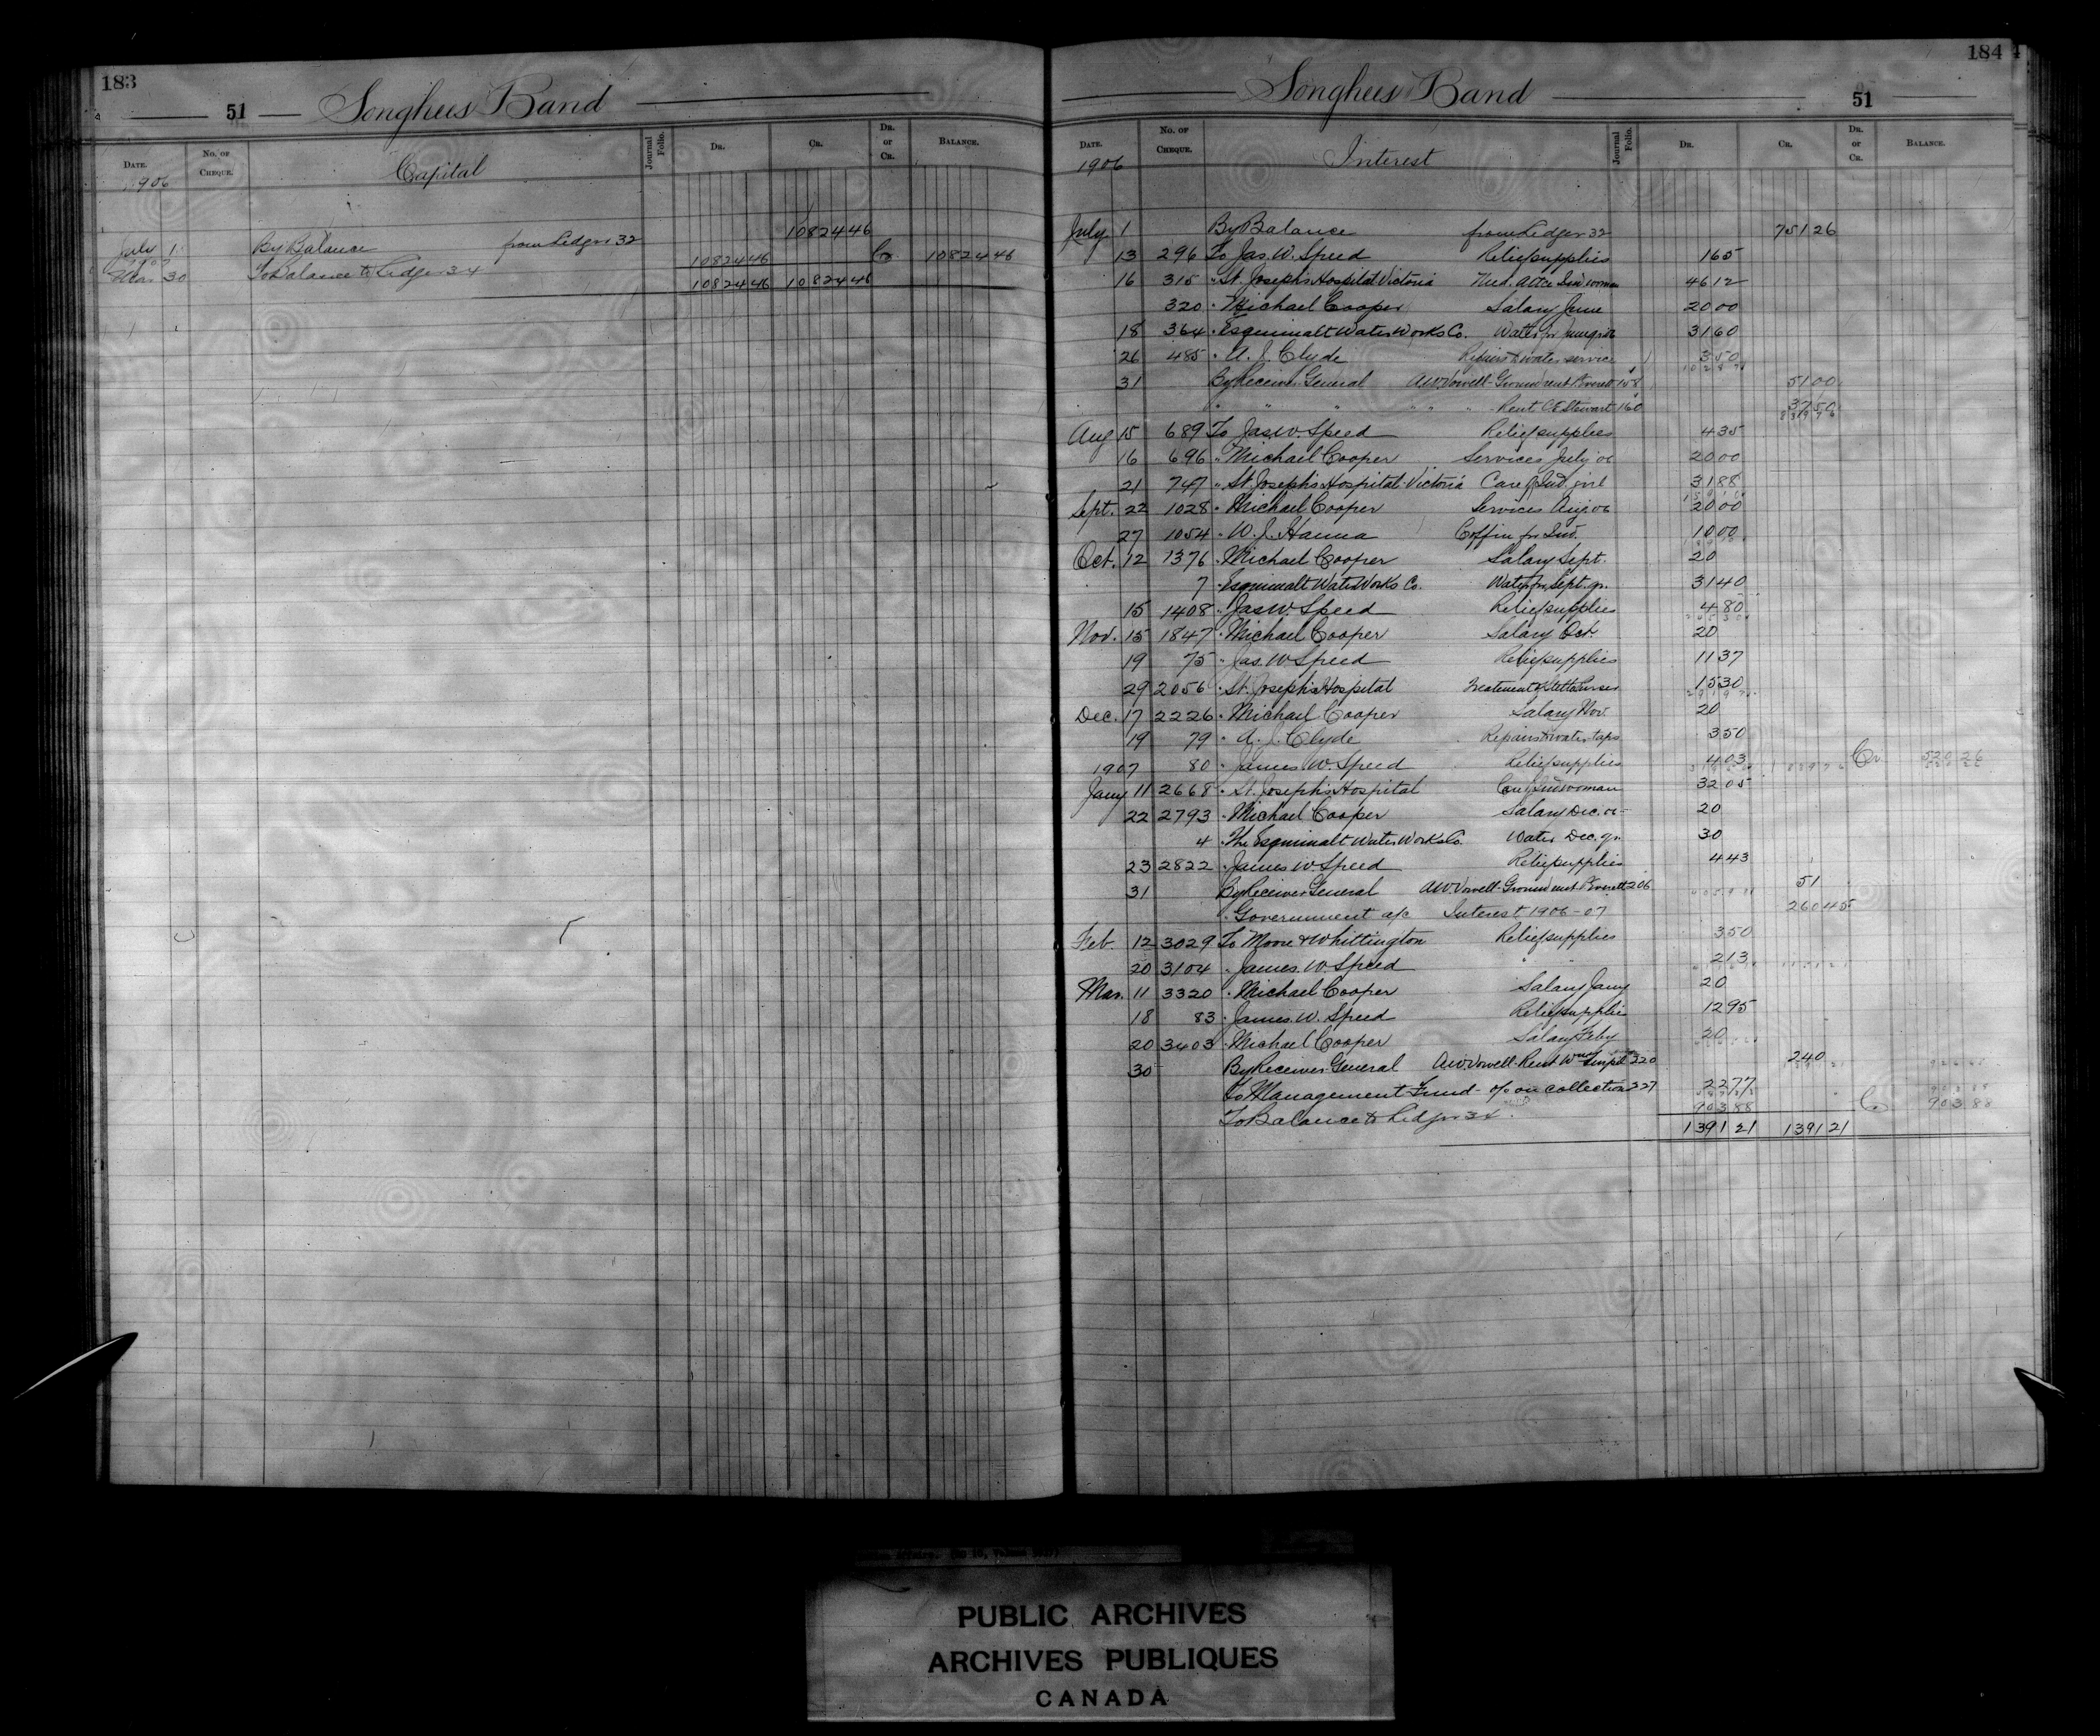 183
51 Songhees Band
Date. No. of Cheque. Capital Journal Folio. Dr. Cr. Dr. or Cr. Balance.
1906
July 1 By Balance from Ledger 32 10824 46
1907
Mar 30 To Balance to Ledger 34 10824 46 Cr. 10824 46
10824 46 10824 46
184
Songhees Band 51
Date. No. of Cheque. Interest Journal Folio. Dr. Cr. Dr. or Cr. Balance.
1906
July 1 By Balance from Ledger 32 751 26
13 296 To Jas. W. Speed Relief supplies 1 65
16 315 " St. Joseph's Hospital Victoria Med. Attce Ind woman 46 12
320 " Michael Cooper Salary June 20 00
18 364 " Esquimalt Water Works Co. Water for June qr 31 60
26 485 " A. J. Clyde Repairs to water service 3 50
31 By Receiver General A.W. Vowell - Ground rent P. Everett 158 51 00
" " " " " " Rent C.E. Stewart 160 37 50
Aug 15 689 To Jas. W. Speed Relief supplies 4 35
16 696 " Michael Cooper Services July 06 20 00
21 747 " St. Joseph's Hospital Victoria Care of Ind. girl 31 88
Sept. 22 1028 " Michael Cooper Services Aug 06 20 00
27 1054 " W. J. Hanna Coffin for Ind. 10 00
Oct. 12 1376 " Michael Cooper Salary Sept. 20
7 " Esquimalt Water Works Co. Water for Sept. qr. 31 40
15 1408 " Jas W. Speed Relief supplies 4 80
Nov. 15 1847 " Michael Cooper Salary Oct. 20
19 75 " Jas. W Speed Relief supplies 11 37
29 2056 " St. Joseph's Hospital Treatment of 15 30
Dec. 17 2226 " Michael Cooper Salary Nov. 20
19 79 " A. J. Clyde Repairs to water taps 3 50
80 " James W. Speed Relief supplies 4 03 Cr. 520 26
1907
Jany 11 2668 " St. Joseph's Hospital Care of Ind woman 32 05
22 2793 " Michael Cooper Salary Dec. 06 20
4 " The Esquimalt Water Works Co. Water Dec. qr. 30
23 2822 " James W. Speed Relief supplies 4 43
31 By Receiver General A.W. Vowell - Ground rent P. Everett 206 51
" Government a/c Interest 1906-07 260 45
Feb. 12 3029 To Moore & Whittington Relief supplies 3 50
20 3104 " James. W. Speed " " 2 13
Mar. 11 3320 " Michael Cooper Salary Jany 20
18 83 " James. W. Speed Relief supplies 12 95
20 3403 " Michael Cooper Salary Feby 20
30 By Receiver General A.W. Vowell - Rent 220 240
To Management Fund - % on collections 227 22 77
To Balance to Ledger 34 903 88 Cr 903 88
1391 21 1391 21
PUBLIC ARCHIVES
ARCHIVES PUBLIQUES
CANADA